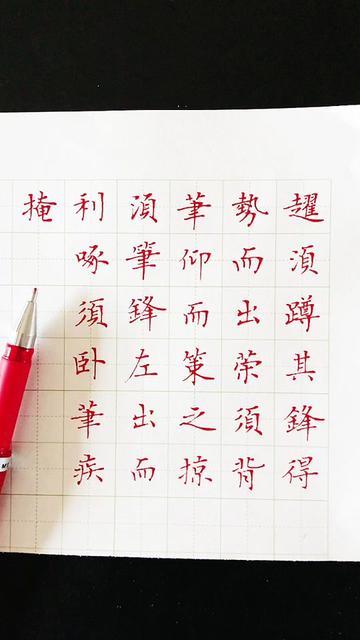 趯湏蹲其鋒得
勢而出荣須背
筆仰而策之掠
湏筆鋒左出而
利啄須卧筆疾
掩